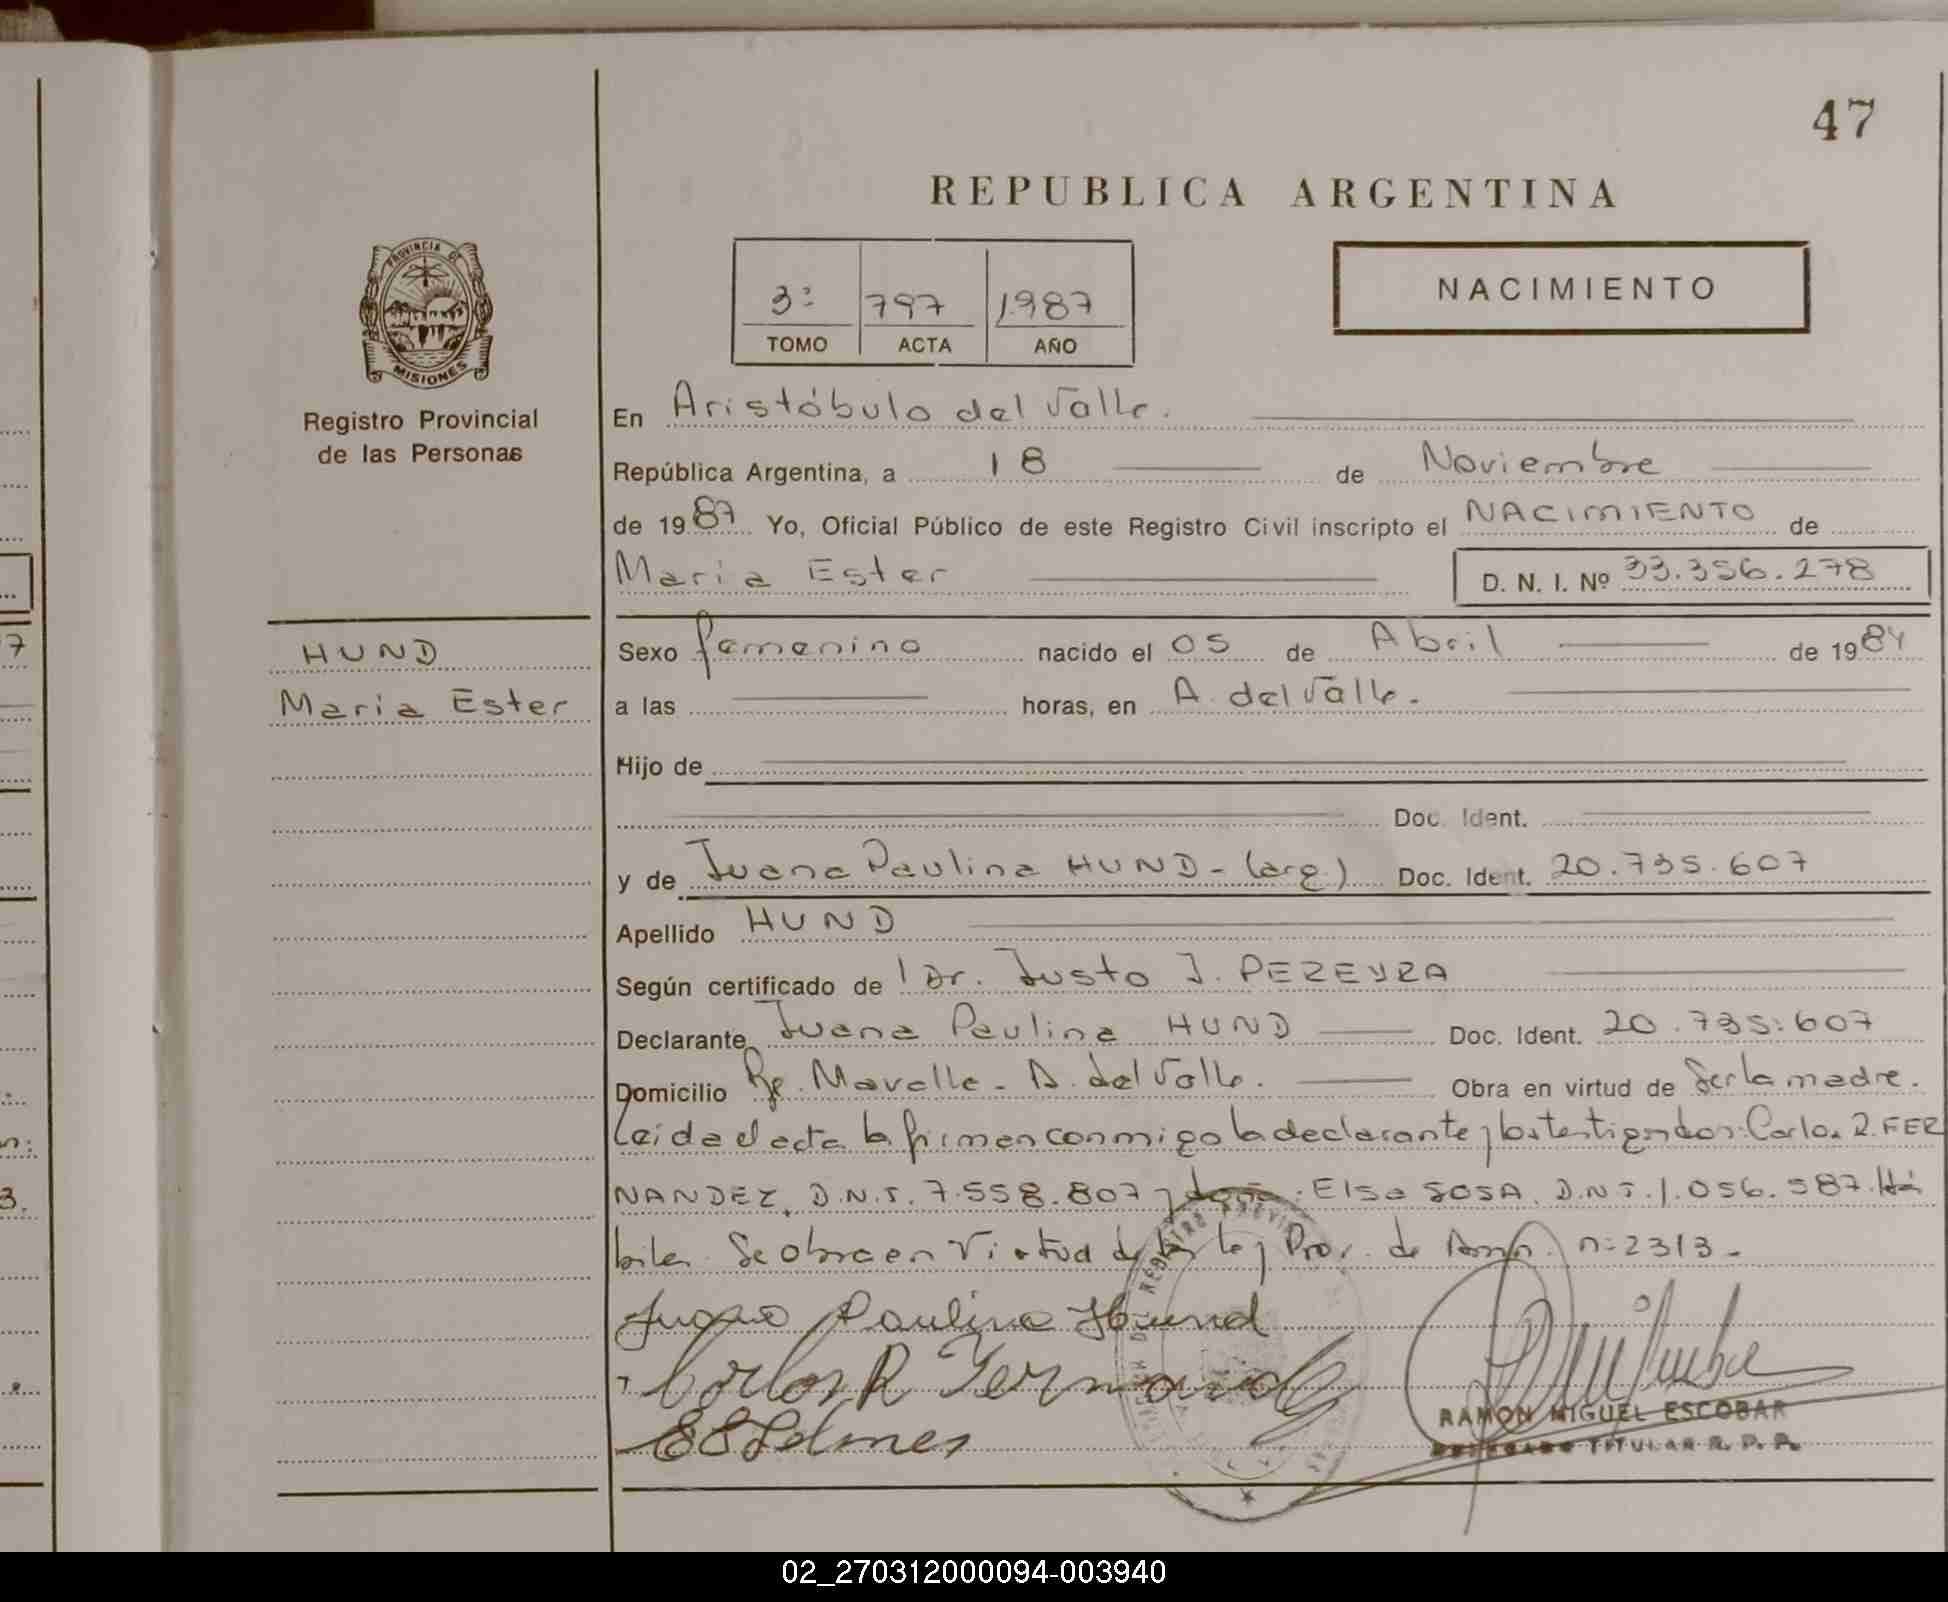 47
REPUBLICA ARGENTINA
PROVINCIA DE
MISIONES
Registro Provincial
de las Personas
3º 797 1987
TOMO ACTA AÑO
NACIMIENTO
En Aristóbulo del Valle.
República Argentina, a 18 de Noviembre
de 1987 Yo, Oficial Público de este Registro Civil inscripto el NACIMIENTO de
Maria Ester D. N. I. Nº 33.356.278
HUND
Maria Ester
Sexo femenino nacido el 05 de Abril de 1984
a las horas, en A. del Valle.
Hijo de
Doc. Ident.
y de Juana Paulina HUND - (arg.) Doc. Ident. 20.735.607
Apellido HUND
Según certificado de 1 Dr. Justo J. PEREYRA
Declarante Juana Paulina HUND Doc. Ident. 20.735.607
Domicilio A. del Valle. Obra en virtud de Ser la madre.
Leida el acta la firman conmigo la declarante y los testigos don: Carlos R. FER
NANDEZ. D.N.I. 7.558.807 y doña: Elsa SOSA. D.N.I. 1.056.587. Há
biles. Se obra en Virtud de la ley Prov. de n=2313-
Juana Paulina Hund
Carlos R Fernandez
RAMON MIGUEL ESCOBAR
DELEGADO TITULAR R. P. P.
02_270312000094-003940